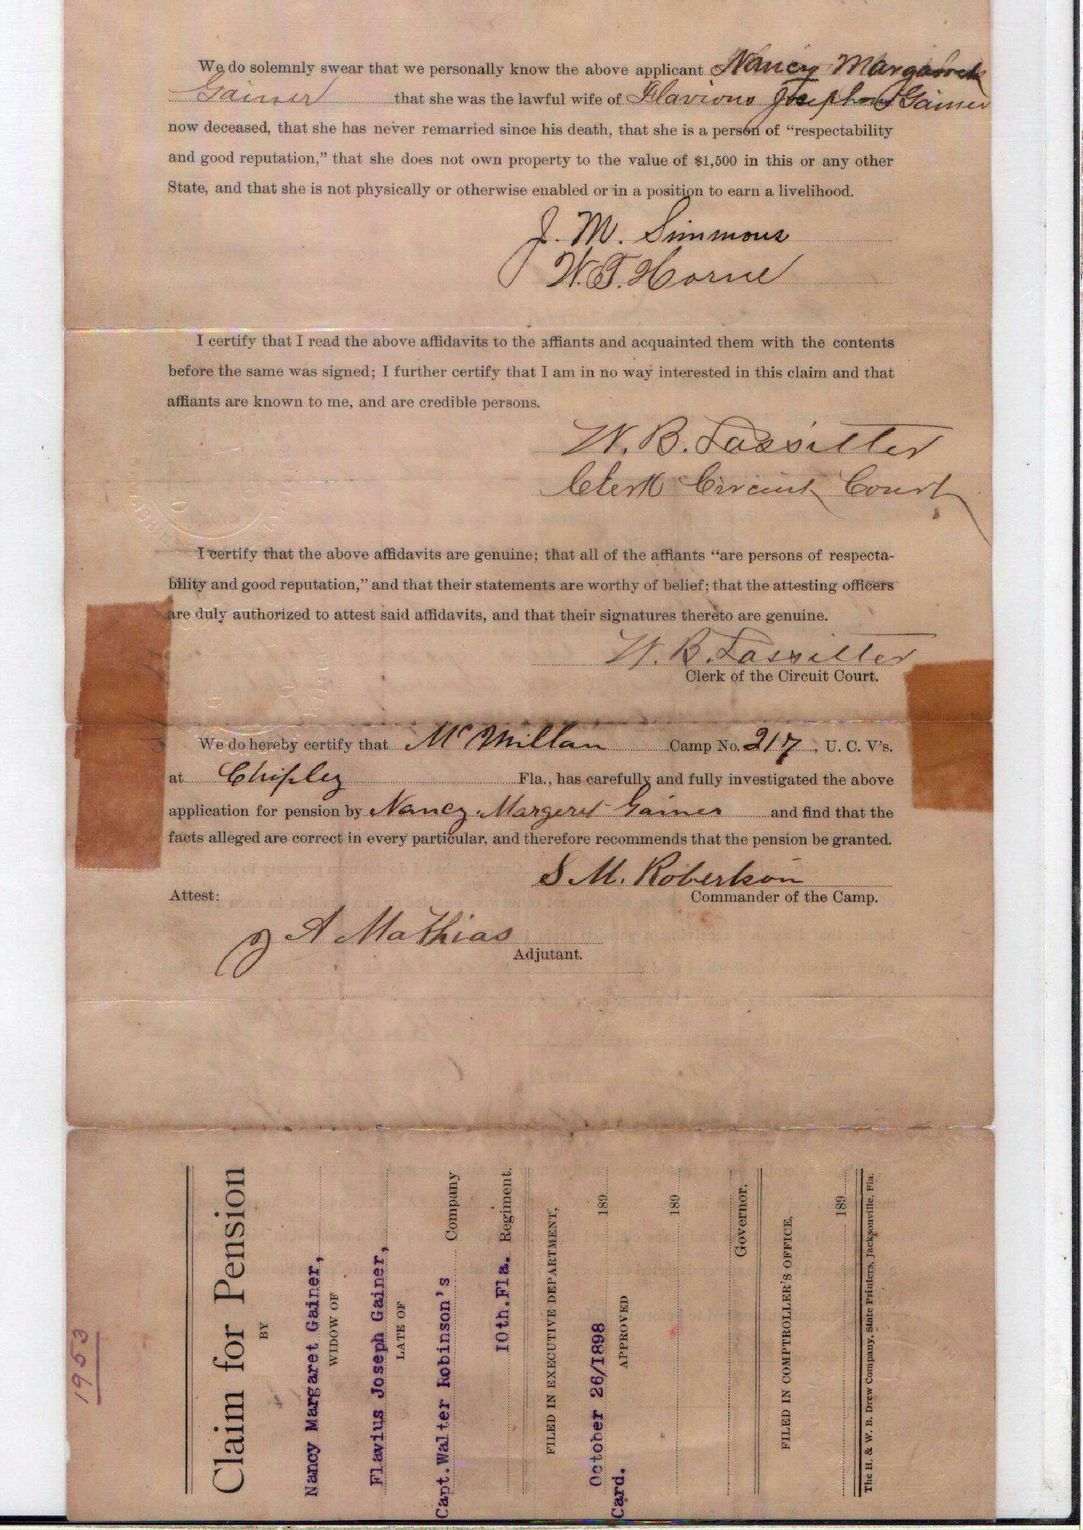 We do solemnly swear that we personally know the above applicant Nancy Margaret
Gainer that she was the lawful wife of Flavious Josephus Gainer
now deceased, that she has never remarried since his death, that she is a person of “respectability
and good reputation,” that she does not own property to the value of $1,500 in this or any other
State, and that she is not physically or otherwise enabled or in a position to earn a livelihood.
J. M. Simmons
W. T. Horne
I certify that I read the above affidavits to the affiants and acquainted them with the contents
before the same was signed; I further certify that I am in no way interested in this claim and that
affiants are known to me, and are credible persons.
W. B. Lassitter
Clerk Circuit Court
I certify that the above affidavits are genuine; that all of the affiants “are persons of respecta-
bility and good reputation,” and that their statements are worthy of belief; that the attesting officers
are duly authorized to attest said affidavits, and that their signatures thereto are genuine.
W. B. Lassitter
Clerk of the Circuit Court.
We do hereby certify that McMillan Camp No. 217, U. C. V's.
at Chipley Fla., has carefully and fully investigated the above
application for pension by Nancy Margeret Gainer and find that the
facts alleged are correct in every particular, and therefore recommends that the pension be granted.
S M. Robertson
Commander of the Camp.
Attest:
J A Mathias
Adjutant.
1953
Claim for Pension
BY
Nancy Margaret Gainer,
WIDOW OF
Flavius Joseph Gainer,
LATE OF
Capt. Walter Robinson's Company
10th. Fla. Regiment.
FILED IN EXECUTIVE DEPARTMENT,
October 26/1898 189
APPROVED
Card.
189
Governor.
FILED IN COMPTROLLER'S OFFICE,
189
The H. & W. B. Drew Company, State Printers, Jacksonville, Fla.